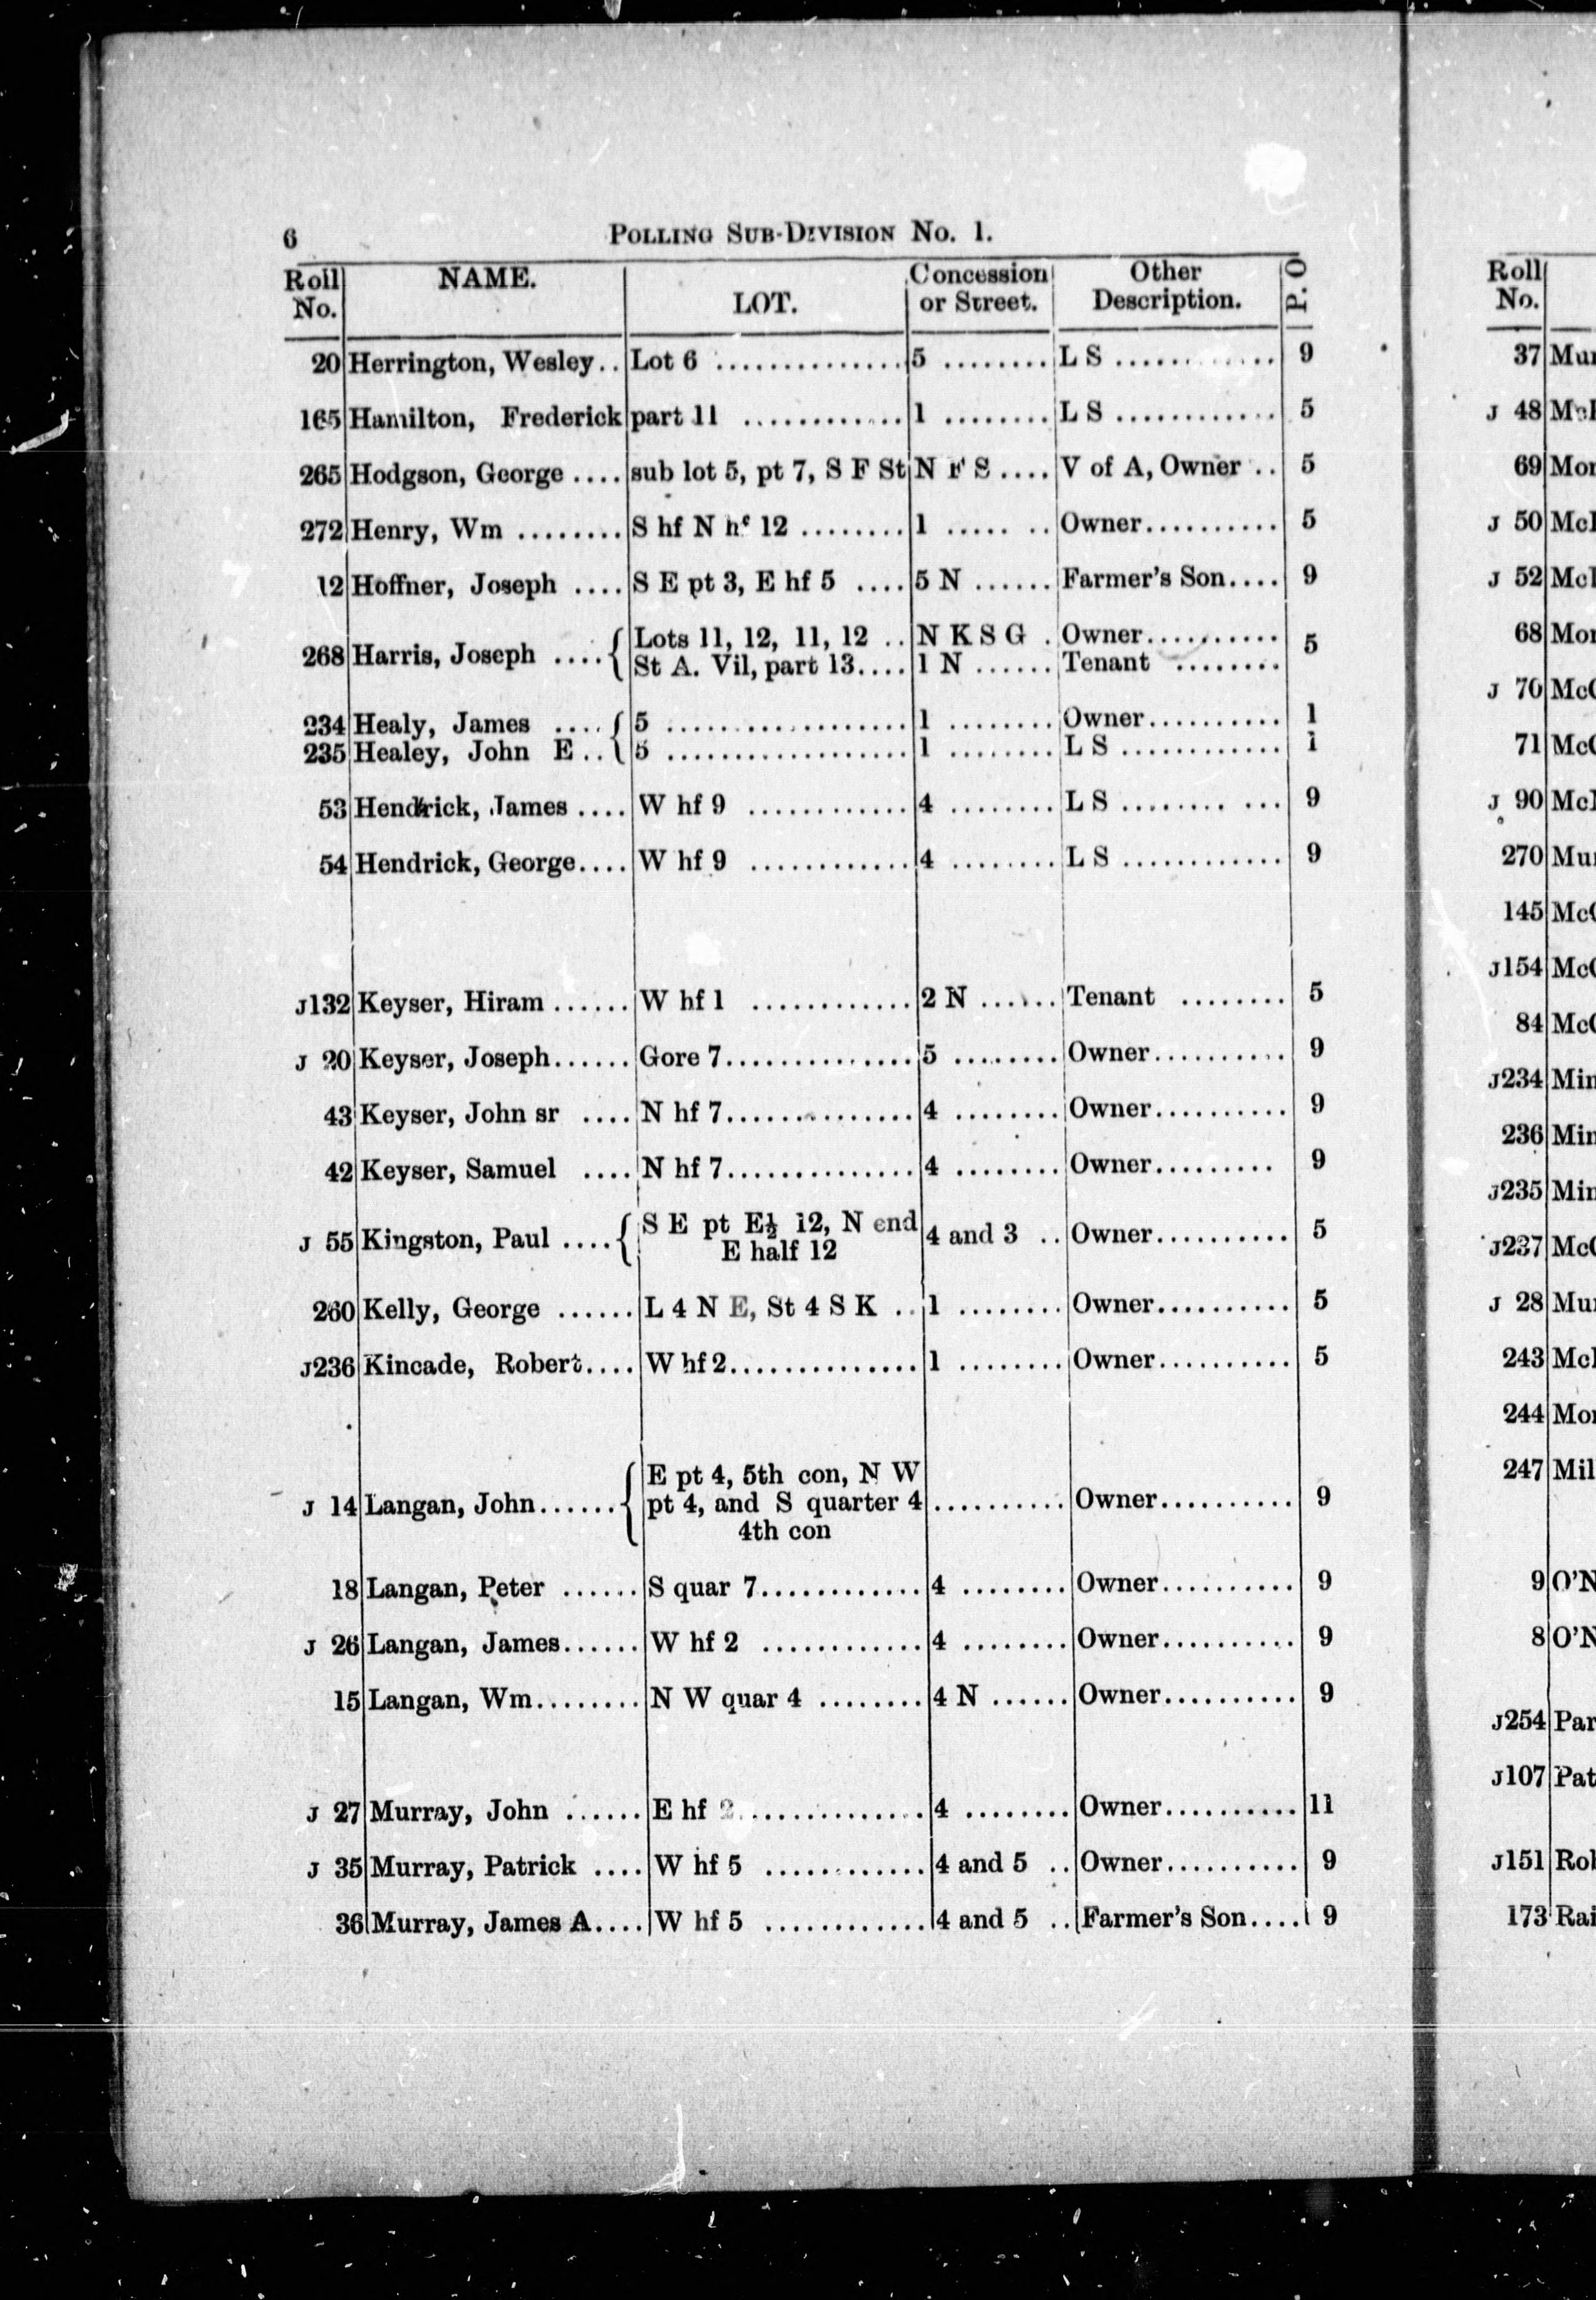 6 POLLING SUB-DIVISION No. 1.
Roll No. NAME. LOT. Concession or Street. Other Description. P. O
20 Herrington, Wesley.. Lot 6 .............. 5 ........ L S ............ 9
165 Hamilton, Frederick part 11 ............ 1 ........ L S ............ 5
265 Hodgson, George .... sub lot 5, pt 7, S F St N F S .... V of A, Owner .. 5
272 Henry, Wm ........ S hf N hf 12 ........ 1 ..... .. Owner.......... 5
12 Hoffner, Joseph .... S E pt 3, E hf 5 .... 5 N ...... Farmer's Son.... 9
268 Harris, Joseph .... { Lots 11, 12, 11, 12 .. N K S G . Owner.......... 5
St A. Vil, part 13.... 1 N ...... Tenant ........
234 Healy, James .... { 5 .................. 1 ........ Owner.......... 1
235 Healey, John E.. { 5 .................. 1 ........ L S ............ 1
53 Hendrick, James .... W hf 9 ............ 4 ........ L S ........ ... 9
54 Hendrick, George.... W hf 9 ............ 4 ........ L S ............ 9
J132 Keyser, Hiram ...... W hf 1 ............ 2 N ...... Tenant ........ 5
J 20 Keyser, Joseph...... Gore 7.............. 5 ........ Owner.......... 9
43 Keyser, John sr .... N hf 7.............. 4 ........ Owner.......... 9
42 Keyser, Samuel .... N hf 7.............. 4 ........ Owner......... 9
J 55 Kingston, Paul .... { S E pt E½ 12, N end 4 and 3 .. Owner.......... 5
E half 12
260 Kelly, George ...... L 4 N E, St 4 S K .. 1 ........ Owner.......... 5
J236 Kincade, Robert.... W hf 2.............. 1 ........ Owner.......... 5
E pt 4, 5th con, N W
J 14 Langan, John...... { pt 4, and S quarter 4 .......... Owner.......... 9
4th con
18 Langan, Peter ...... S quar 7............ 4 ........ Owner.......... 9
J 26 Langan, James...... W hf 2 ............ 4 ........ Owner.......... 9
15 Langan, Wm........ N W quar 4 ........ 4 N ...... Owner.......... 9
J 27 Murray, John ...... E hf 2.............. 4 ........ Owner.......... 11
J 35 Murray, Patrick .... W hf 5 ............ 4 and 5 .. Owner.......... 9
36 Murray, James A.... W hf 5 ............ 4 and 5 .. Farmer's Son.... 9
Roll No.
37 Mu
J 48
69 Mo
J 50 Mc
J 52 Mc
68 Mo
J 70 Mc
71 Mc
J 90 Mc
270 Mu
145 Mc
J154 Mc
84 Mc
J234 Min
236 Min
J235 Min
J237 Mc
J 28 Mu
243 Mc
244 Mo
247 Mil
9 O'N
8 O'N
J254 Par
J107 Pat
J151 Ro
173 Rai